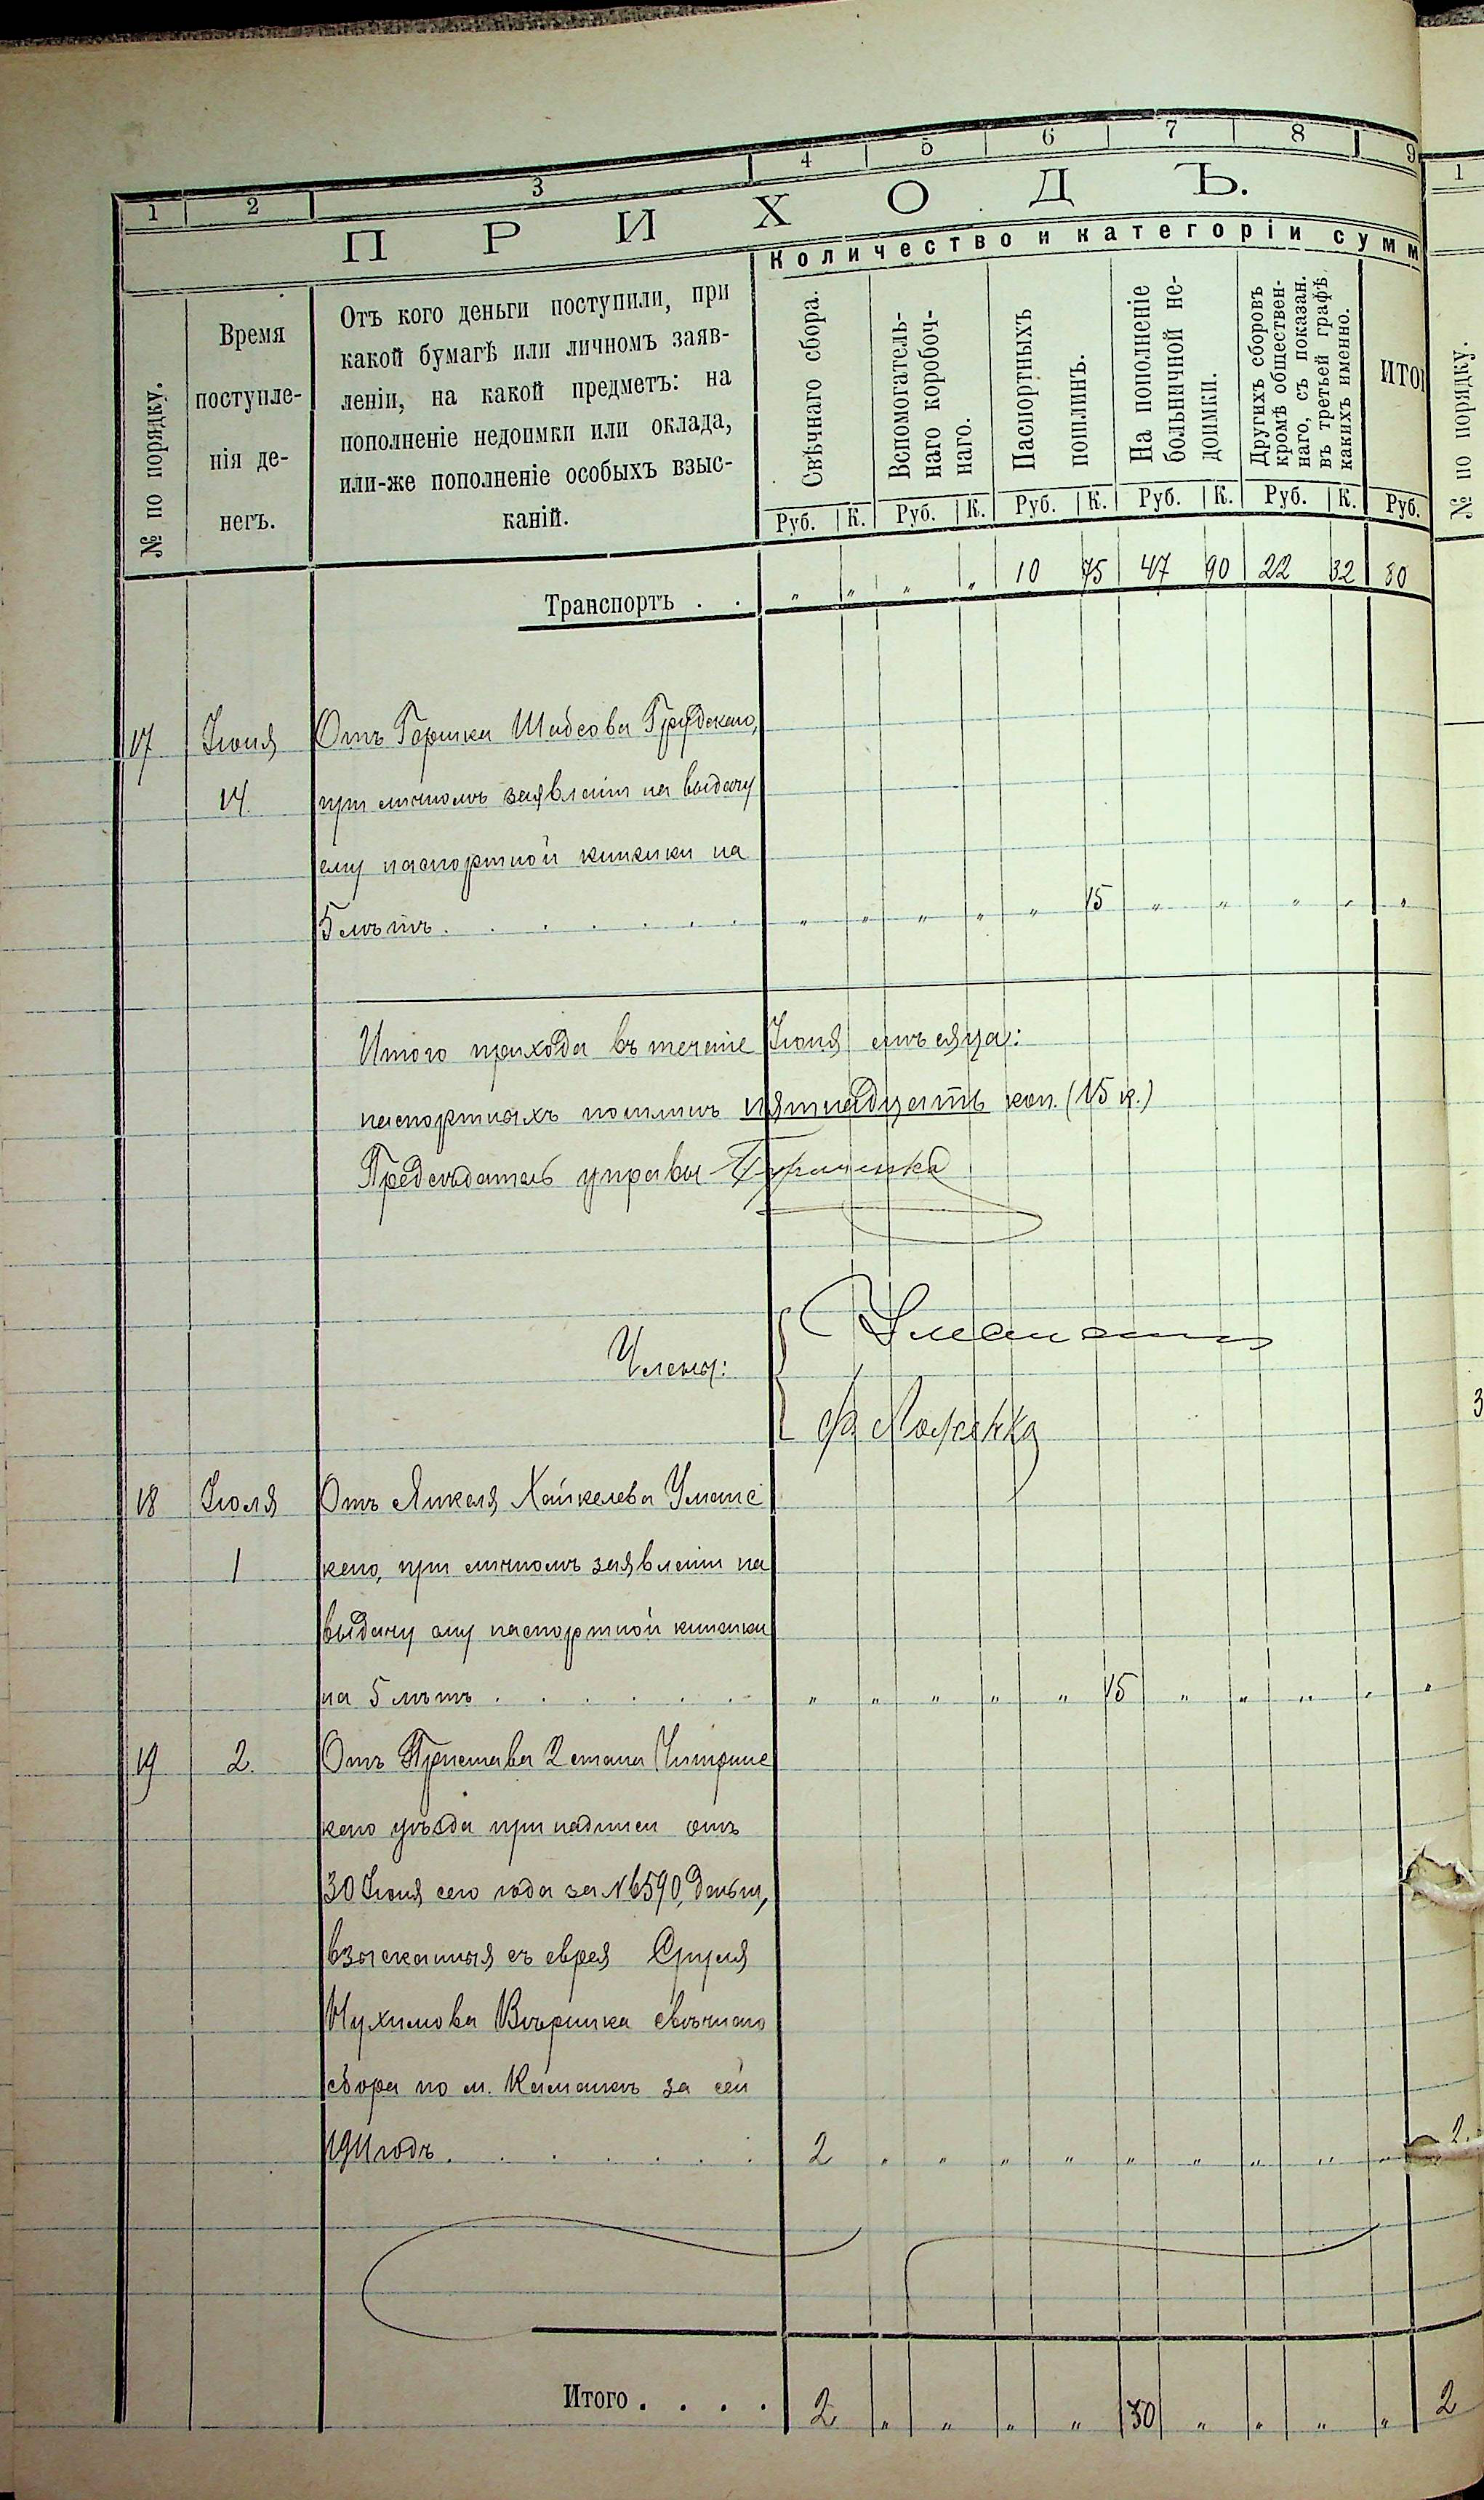 1 2 3 4 5 6 7 8 9
ПРИХОДЪ.
Количество и категоріи сумм
№ по порядку.
Время
поступле-
нія де-
негъ.
Отъ кого деньги поступили, при
какой бумагѣ или личномъ заяв-
леніи, на какой предметъ: на
пополненіе недоимки или оклада,
или-же пополненіе особыхъ взыс-
каній.
Свѣчнаго сбора.
Вспомогатель-
наго коробоч-
наго.
Паспортныхъ
пошлинъ.
На пополненіе
больничной не-
доимки.
Другихъ сборовъ
кромѣ обществен-
наго, съ показан.
въ третьей графѣ
какихъ именно.
ИТОГ
Руб. К. Руб. К. Руб. К. Руб. К. Руб. К. Руб.
Транспортъ . . " " " " 10 75 47 90 22 32 80
17 Іюня Отъ Гершка Шабсова Грудскаго,
14. при личномъ заявленіи на выдачу
ему паспортной книжки на
5 лѣтъ . . . . . . . " " " " " 15 " " " " "
Итого прихода въ теченіе Іюня мѣсяца:
паспортныхъ пошлинъ пятнадцать коп. (15 к.)
Предсѣдатель управы
Члены:
18 Іюля Отъ Янкеля Хайкелева Уманс
1 каго, при личномъ заявленіи на
выдачу ему паспортной книжки
на 5 лѣтъ . . . . . . " " " " " 15 " " " " "
19 2. Отъ Пристава 2 стана Чигринс
каго уѣзда при надписи отъ
30 Іюня сего года за № 6590, деньги,
взысканныя съ еврея Сруля
Нухимова свѣчнаго
сбора по м. Каменкѣ за сей
1911 годъ . . . . . . . 2 " " " " " " " " " 2.
Итого . . . . 2 " " " " 30 " " " " 2
1
№ по порядку.
3